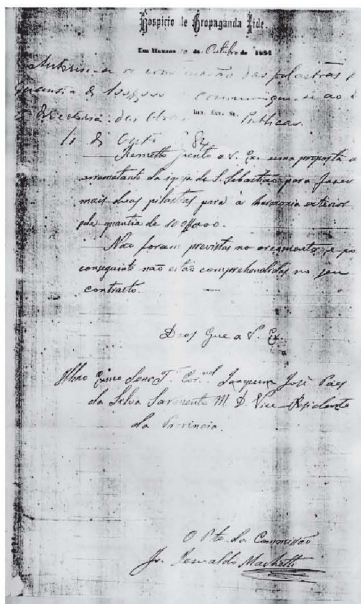 Hospicio de Propaganda Fide.
Em Manaos de Outubro de 188
das pilastras
quantia de communique-se ao
Directoria das Obras Publicas.
Illmo. Exc. Sr.
Remetto junto a V. Ex. uma proposta
arrematante da igreja de S. Sebastião para fazer
mais duas pilastras para a harmonia exterior
pela quantia de
Não foram previstas no orçamento, e po
conseguinte não estão comprehendidas no seu
contracto.
Deos Gue a V. Ex.
Illmo Exmo Senr T. Cor.nel Joaquim José Paes
da Silva Sarmento M. D. Vice Presidente
da Provincia.
O Pte da Commissão
Fr. Jesualdo Machetti